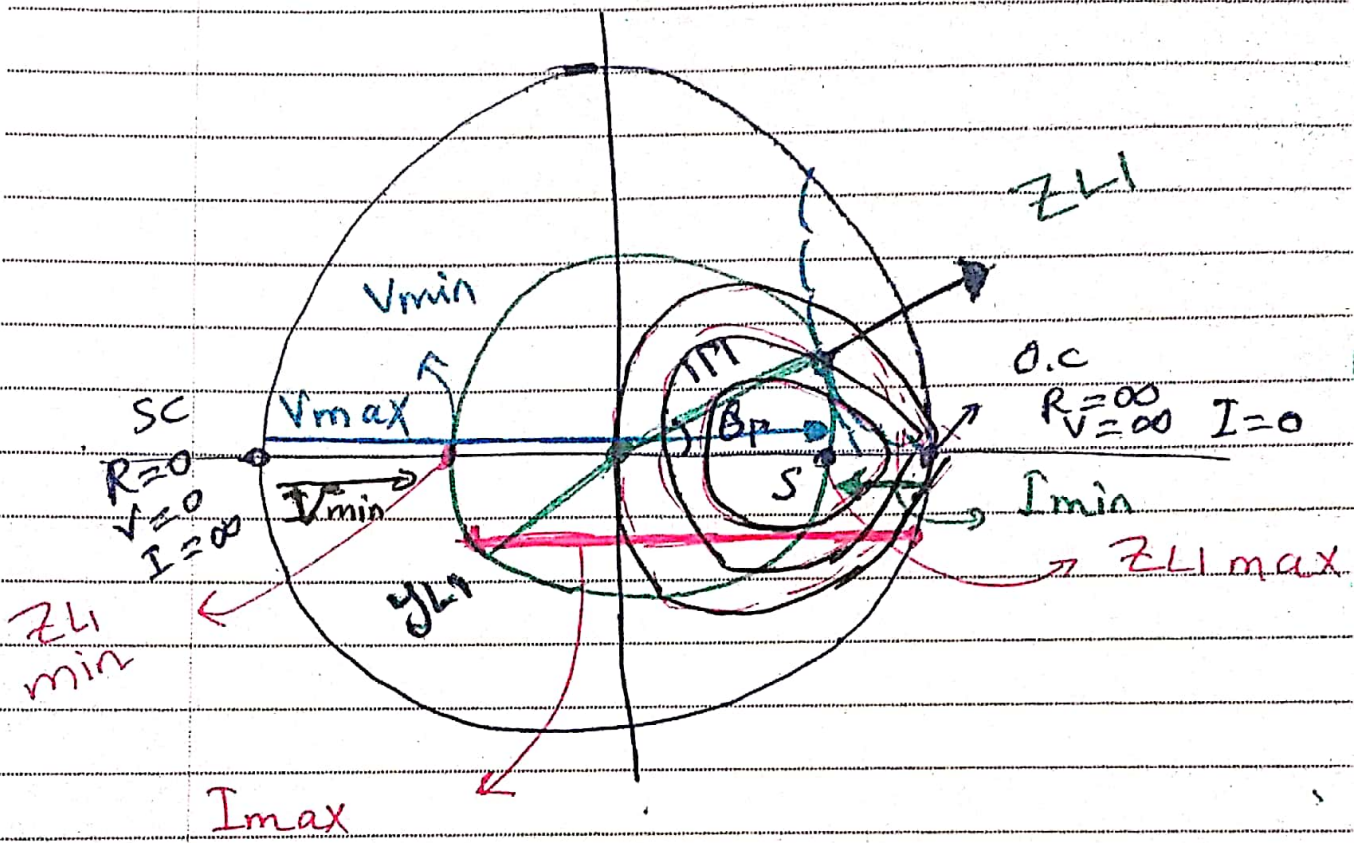 ZL1
Vmin
O.C
R=∞
V=∞ I=0
SC
Vmax
|Γ|
βp
R=0
V=0
I=∞
Vmin
S
Imin
ZL1 max
yL1
ZL1
min
Imax